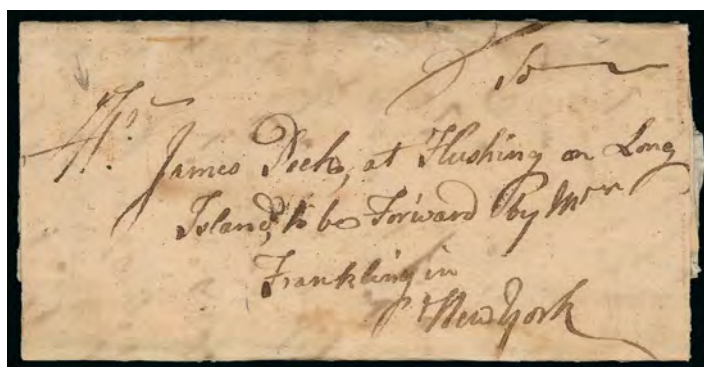 To
James at Flushing on Long
Island, to be Forward by
Frankling in
New York